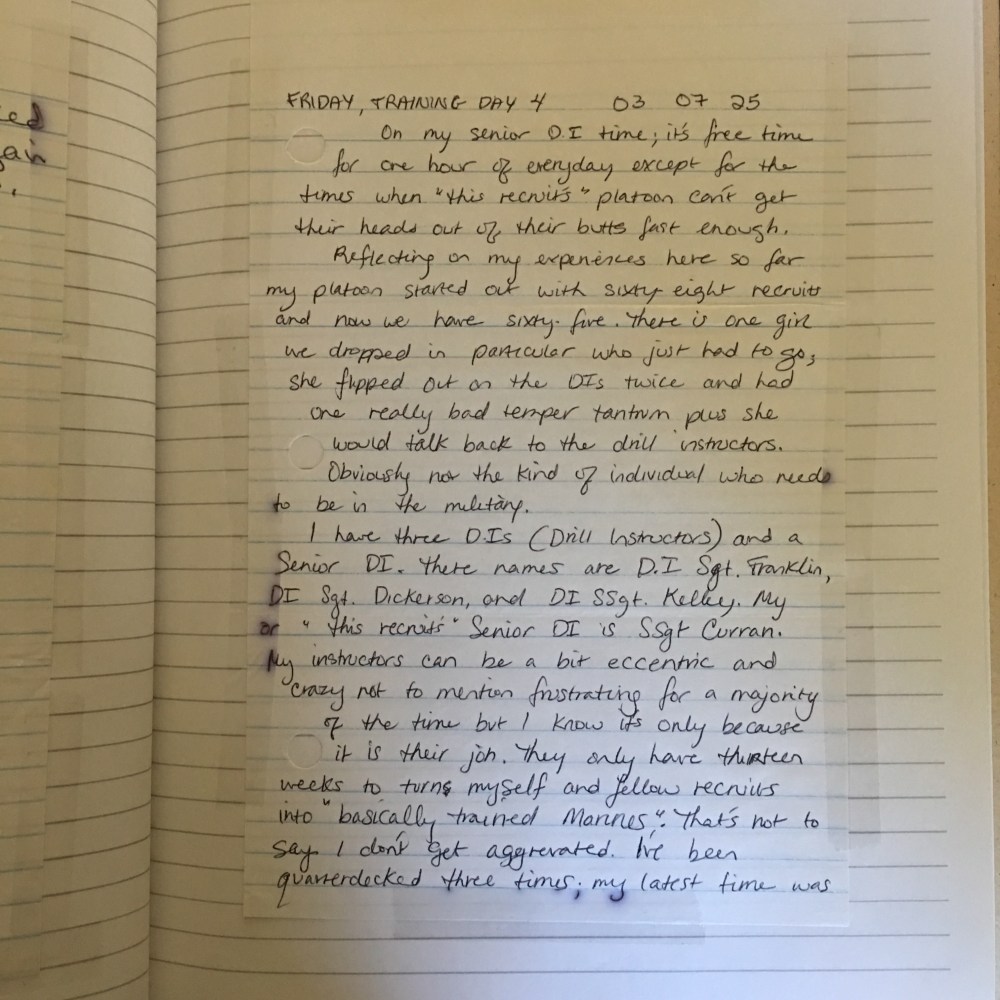 ed
ain
FRIDAY, TRAINING DAY 4 03 07 25
On my senior D.I time; it's free time
for one hour of everyday except for the
times when "this recruit's" platoon can't get
their heads out of their butts fast enough.
Reflecting on my experiences here so far
my platoon started out with sixty eight recruits
and now we have sixty-five. There is one girl
we dropped in particular who just had to go;
she flipped out on the DIs twice and had
one really bad temper tantrum plus she
would talk back to the drill instructors.
Obviously not the kind of individual who needs
to be in the military.
I have three D.Is (Drill Instructors) and a
Senior DI. There names are D.I Sgt. Franklin,
DI Sgt. Dickerson, and DI SSgt. Kelley. My
or "this recruit's" Senior DI is SSgt Curran.
My instructors can be a bit eccentric and
crazy not to mention frustrating for a majority
of the time but I know it's only because
it is their job. They only have thirteen
weeks to turn myself and fellow recruits
into "basically trained Marines". That's not to
say I don't get aggrevated. I've been
quarterdecked three times; my latest time was